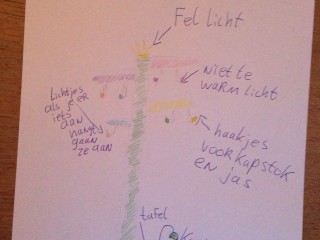 Fel licht
niet te
warm licht
lichtjes
als je er
iets
aan
hangt
gaan
ze aan
haakjes
voor kapstok
en jas
tafel